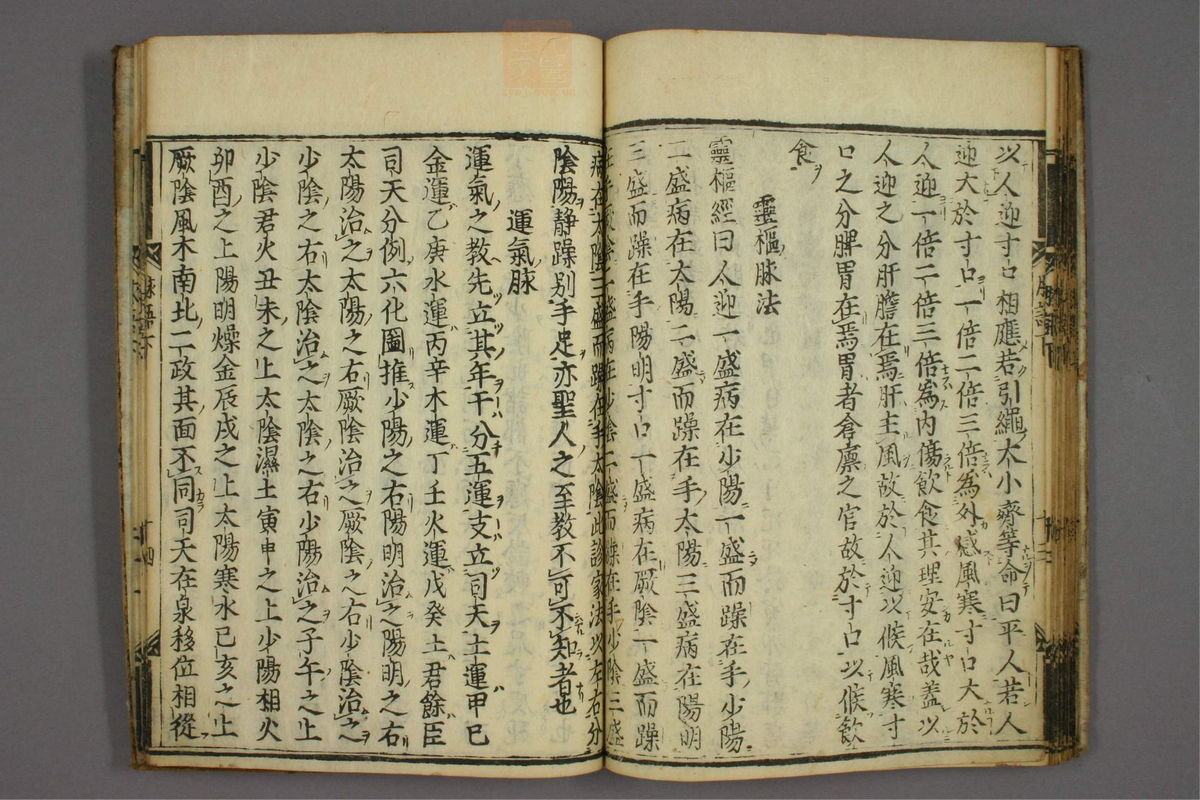 以人迎寸口相應若引繩大小齊等命曰平人若人
迎大於寸口一倍二倍三倍為外感風寒寸口大於
人迎一倍二倍三倍為內傷飲食其理安在哉蓋以
人迎之分肝膽在焉肝主風故於人迎以候風寒寸
口之分脾胃在焉胃者倉廩之官故於寸口以候飲
食
靈樞脉法
靈樞經曰人迎一盛病在少陽一盛而躁在手少陽
二盛病在太陽二盛而躁在手太陽三盛病在陽明
三盛而躁在手陽明寸口一盛病在厥陰一盛而躁
在手厥陰二盛病在少陰二盛而躁在手少陰三盛
病在太陰三盛而躁在手太陰此診家法以左右分
陰陽静躁别手足亦聖人之至教不可不知者也
運氣脉
運氣之教先立其年干分五運支立司天土運甲己
金運乙庚水運丙辛木運丁壬火運戊癸土君餘臣
司天分例六化圖推少陽之右陽明治之陽明之右
太陽治之太陽之右厥陰治之厥陰之右少陰治之
少陰之右太陰治之太陰之右少陽治之子午之上
少陰君火丑未之上太陰濕土寅申之上少陽相火
卯酉之上陽明燥金辰戌之上太陽寒水巳亥之上
厥陰風木南北二政其面不同司天在泉移位相從
脉語下
廿四